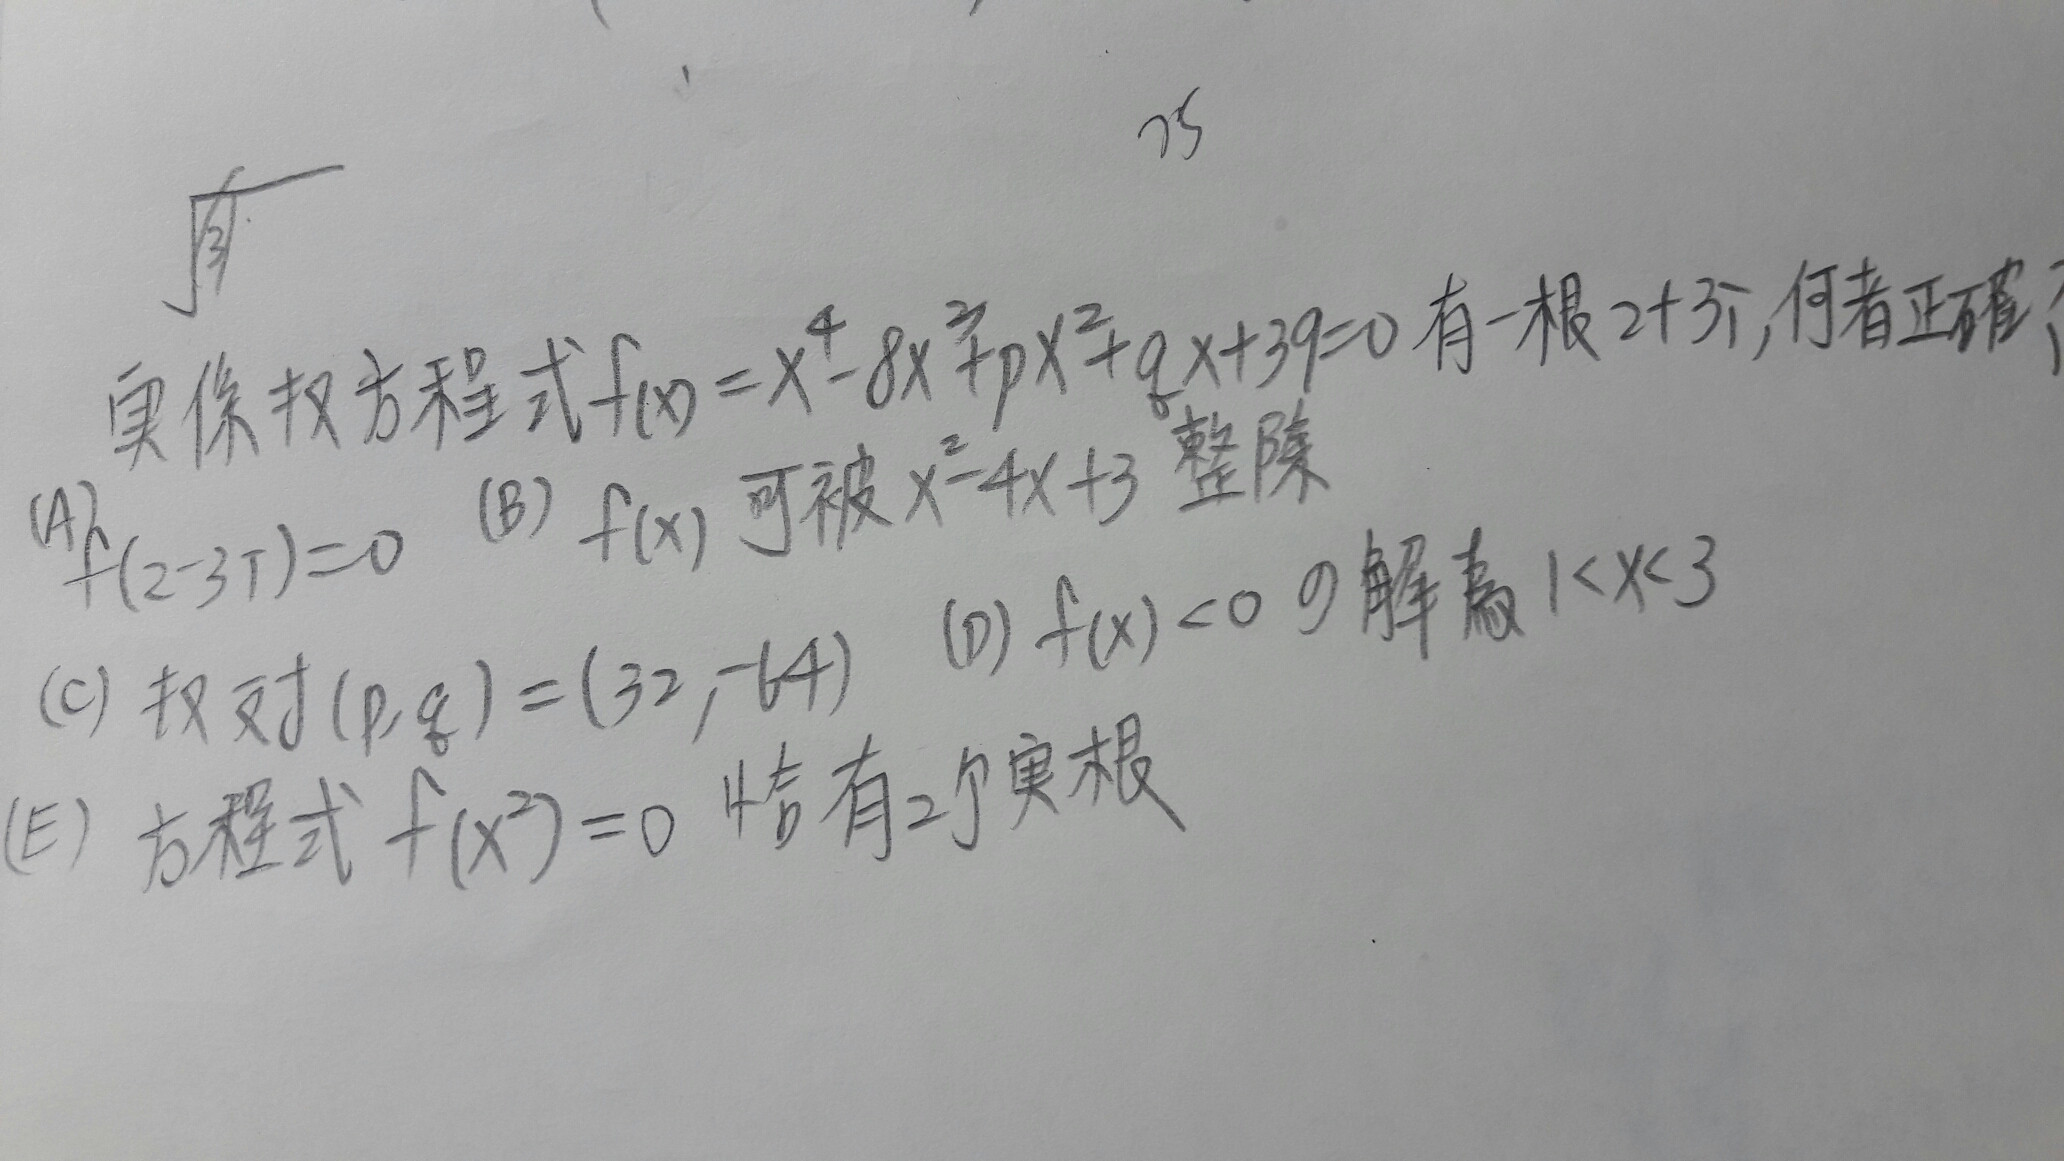 25
实係权方程式f(x)=x⁴-8x³+px²+qx+39=0有一根2+3i,何者正確?
(A) f(2-3i)=0 (B) f(x)可被x²-4x+3整除
(C) 权对(p,q)=(32,-64) (D) f(x)<0の解為1<x<3
(E) 方程式f(x²)=0恰有2个実根